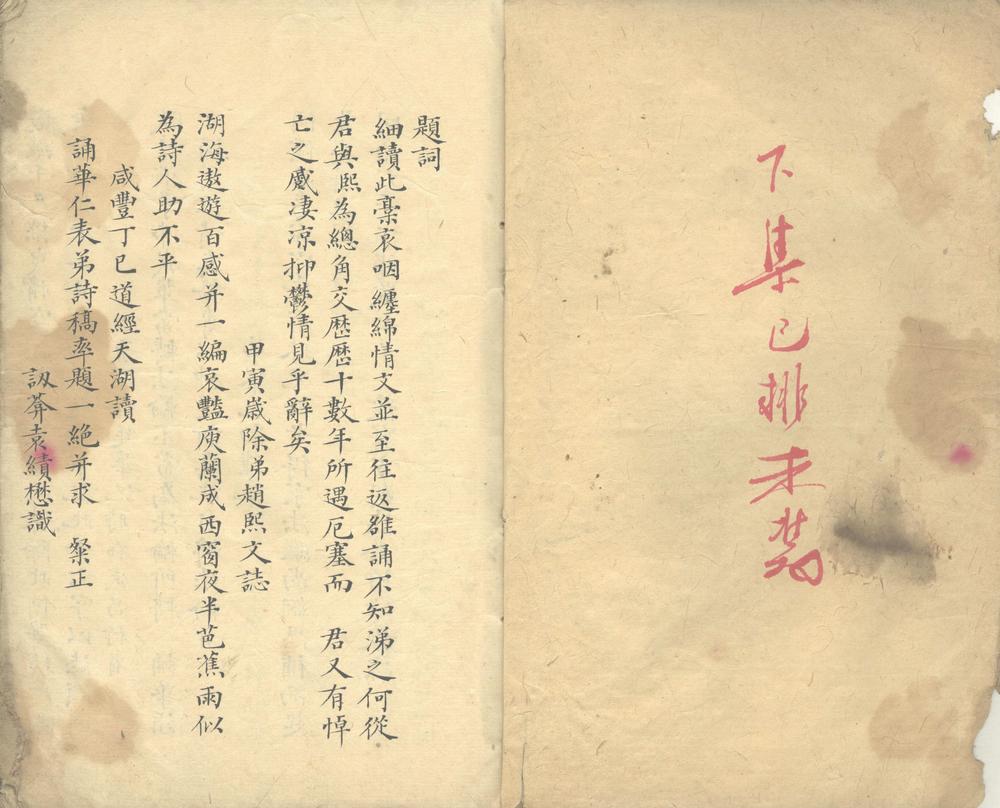 下集已排未裝
題詞
細讀此稾哀咽纏綿情文並至往返雒誦不知涕之何從
君與熙為總角交歷歷十數年所遇厄塞而 君又有悼
亡之感淒凉抑鬱情見乎辭矣
甲寅歲除弟趙熙文誌
湖海遨遊百感并一編哀豔庾蘭成西窗夜半芭蕉雨似
為詩人助不平
咸豐丁巳道經天湖讀
誦華仁表弟詩稿率題一絕并求 粲正
訒葊袁績懋識